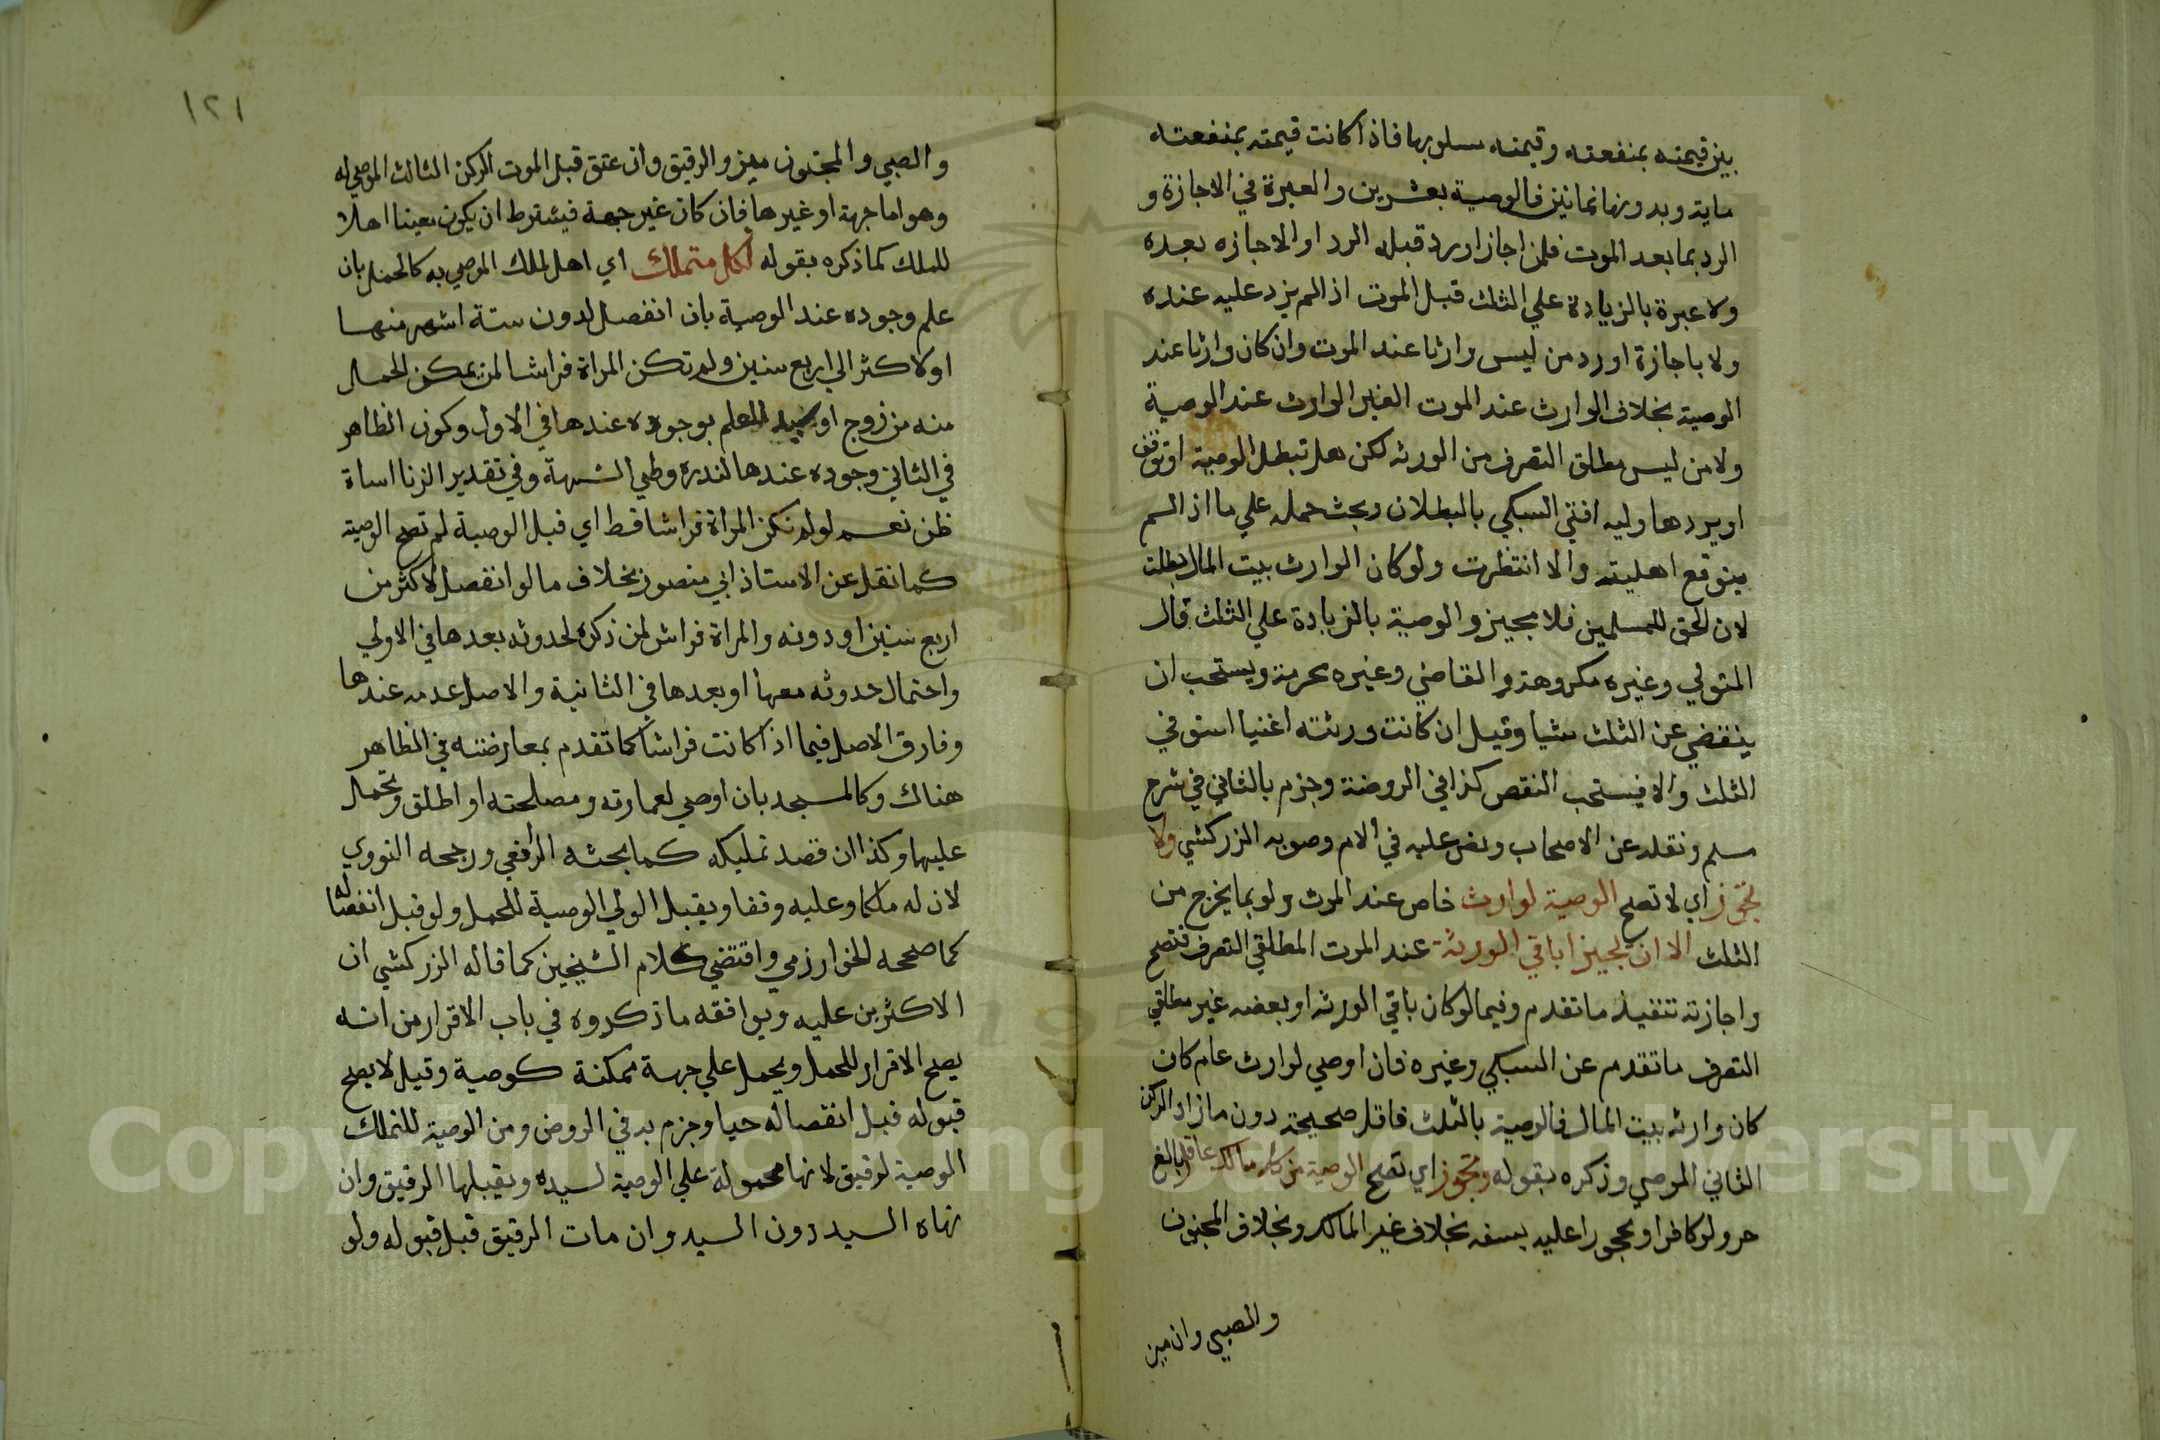 بين قيمته بمنفعته وقيمته مسلوبها فاذا كانت قيمته بمنفعته
ماية وبدونها ثمانين فالوصية بعشرين والعبرة في الاجازة و
الرد بما بعد الموت فلمن اجاز او رد قبله الرد او الاجازه بعده
ولا عبرة بالزيادة علي الثلث قبل الموت اذ الم يزد عليه عنده
ولا باجازة او رد من ليس وارثا عند الموت وان كان وارثا عند
الوصية بخلاف الوارث عند الموت الغير الوارث عند الوصية
ولا من ليس مطلق التصرف من الورثه لكن هل تبطل الوصية او توقف
او يردها وليه افتي السبكي بالبطلان وبحث حمله علي ما اذا لم
يتوقع اهليته والا انتظرت ولو كان الوارث بيت المال بطلت
لان الحق للمسلمين فلا مجيز والوصية بالزيادة علي الثلث قال
المتولي وغيره مكروهة والقاضي وغيره محرمة ويستحب ان
ينقص عن الثلث شيا وقيل ان كانت ورثته اغنيا استوفي
الثلث والا فيستحب النقص كذا في الروضة وجزم بالثاني في شرح
مسلم ونقله عن الاصحاب ونص عليه في الام وصوبه الزركشي ولا
تجوز اي لا تصح الوصية لوارث خاص عند الموت ولو بما يخرج من
الثلث الا ان يجيزها باقي الورثة عند الموت المطلقي التصرف فتصح
واجازته تنفيذ ما تقدم وفيما لو كان باقي الورثه او بعضه غير مطلقي
التصرف ما تقدم عن السبكي وغيره فان اوصي لوارث عام كان
كان وارثه بيت المال فالوصية بالثلث فاقل صحيحة دون ما زاد الركن
الثاني الموصي وذكره بقوله وتجوز اي تصح الوصية من كل مالك عاقل بالغ
حر ولو كافرا او محجورا عليه بسفه بخلاف غير المالك وبخلاف المجنون
والصبي وان ميز
١٢١
والصبي والمجنون ميز والرقيق وان عتق قبل الموت الركن الثالث الموصي له
وهو اما جهة او غيرها فان كان غير جهة فيشترط ان يكون معينا اهلا
للملك كما ذكره بقوله لكل متملك اي اهل لملك الموصي به كالحمل بان
علم وجوده عند الوصية بان انفصل لدون ستة اشهر منها
او لاكثر الي اربع سنين ولم تكن المراة فراشا لمن يمكن الحمل
منه من زوج او سيد للعلم بوجوده عندها في الاول وكون الظاهر
في الثاني وجوده عندها لندرة وطي الشبهة وفي تقدير الزنا اساة
ظن نعم لو لم تكن المراة فراشا قط اي قبل الوصية لم تصح الوصية
كما نقل عن الاستاذ ابي منصور بخلاف ما لو انفصل لاكثر من
اربع سنين او دونه والمراة فراش لمن ذكره لحدوثه بعدها في الاولي
واحتمال حدوثه معها او بعدها في الثانية والاصل عدمه عندها
وفارق الاصل فيما اذا كانت فراشا كما تقدم بمعارضته في الظاهر
هناك وكالمسجد بان اوصي لعمارته ومصلحته او اطلق وتحمل
عليها وكذا ان قصد تمليكه كما بحثه الرافعي ورجحه النووي
لان له ملكا وعليه وقفا ويقبل الولي الوصية للحمل ولو قبل انفصاله
كما صححه الخوارزمي واقتضي كلام الشيخين كما قاله الزركشي ان
الاكثرين عليه ويوافقه ما ذكروه في باب الاقرار من انه
يصح الاقرار للحمل ويحمل علي جهة ممكنة كوصية وقيل لا يصح
قبوله قبل انفصاله حيا وجزم به في الروض ومن الوصية للتملك
الوصية لرقيق لانها محمولة علي الوصية لسيده ويقبلها الرقيق وان
نهاه السيد دون السيد وان مات الرقيق قبل قبوله ولو
Copyright © King Saud University